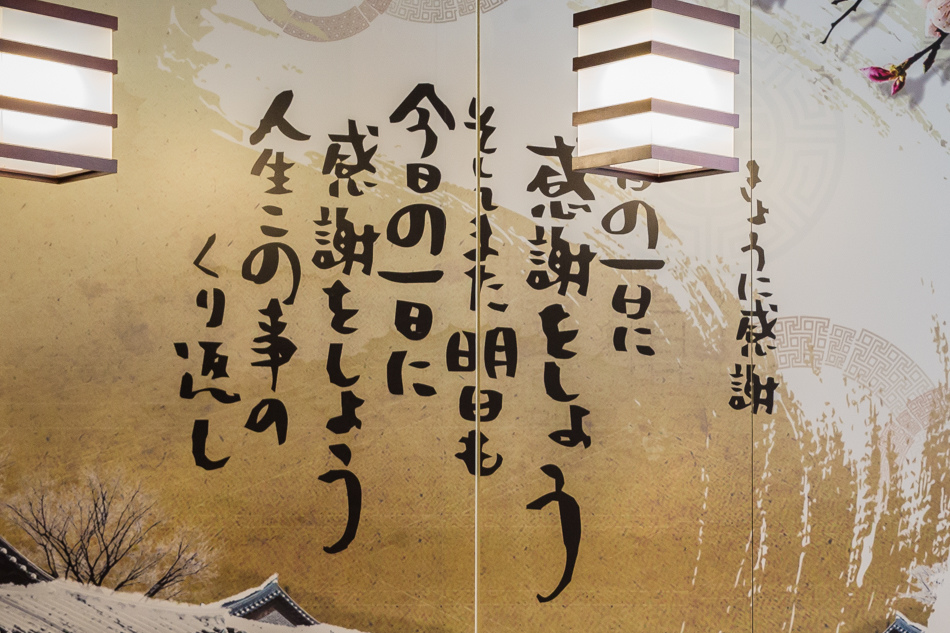 きょうに感謝
日の一日に
感謝をしよう
そしてまた明日も
今日の一日に
感謝をしよう
人生この事の
くり返し